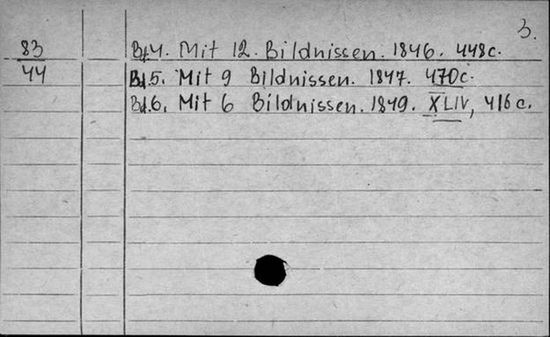 3.
83 Bd.4. Mit 12. Bildnissen. 1846. 448c.
44 Bd.5. Mit 9 Bildnissen. 1847. 470c.
Bd.6. Mit 6 Bildnissen. 1849. XLIV, 416c.